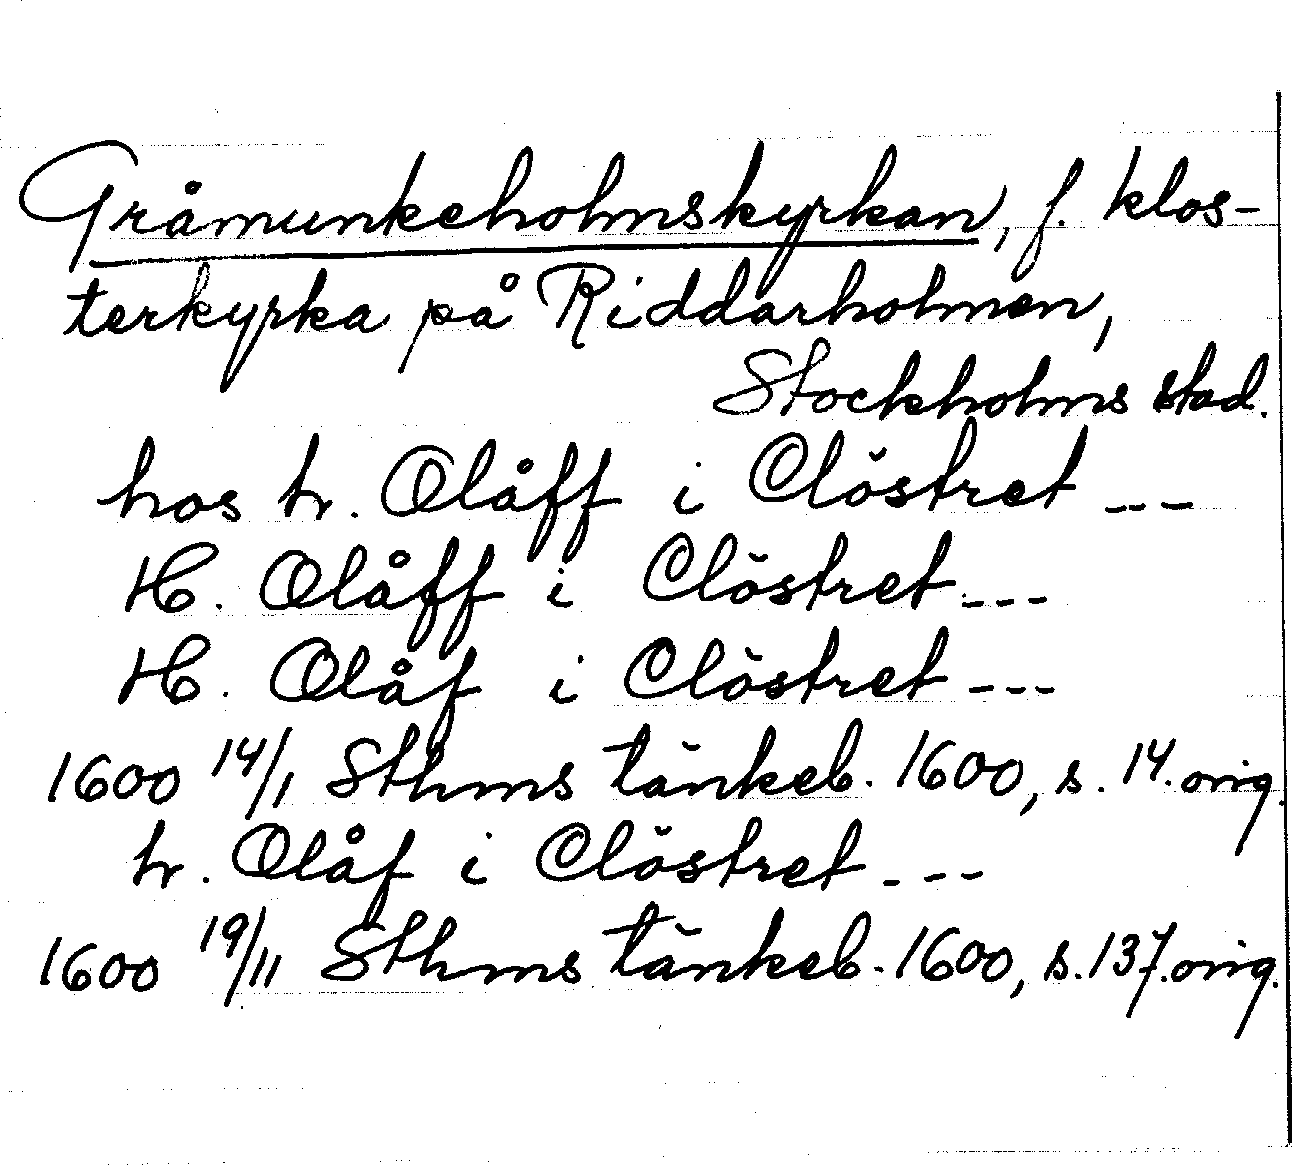 Gråmunkeholmskyrkan, f. klos-
terkyrka på Riddarholmen,
Stockholms stad.
hos hr. Olåff i Clöstret ---
H. Olåff i Clöstret ---
H. Olåf i Clöstret ---
1600 14/1 Sthms tänkeb. 1600, s. 14. orig.
hr. Olåf i Clöstret ---
1600 19/11 Sthms tänkeb. 1600, s. 137. orig.